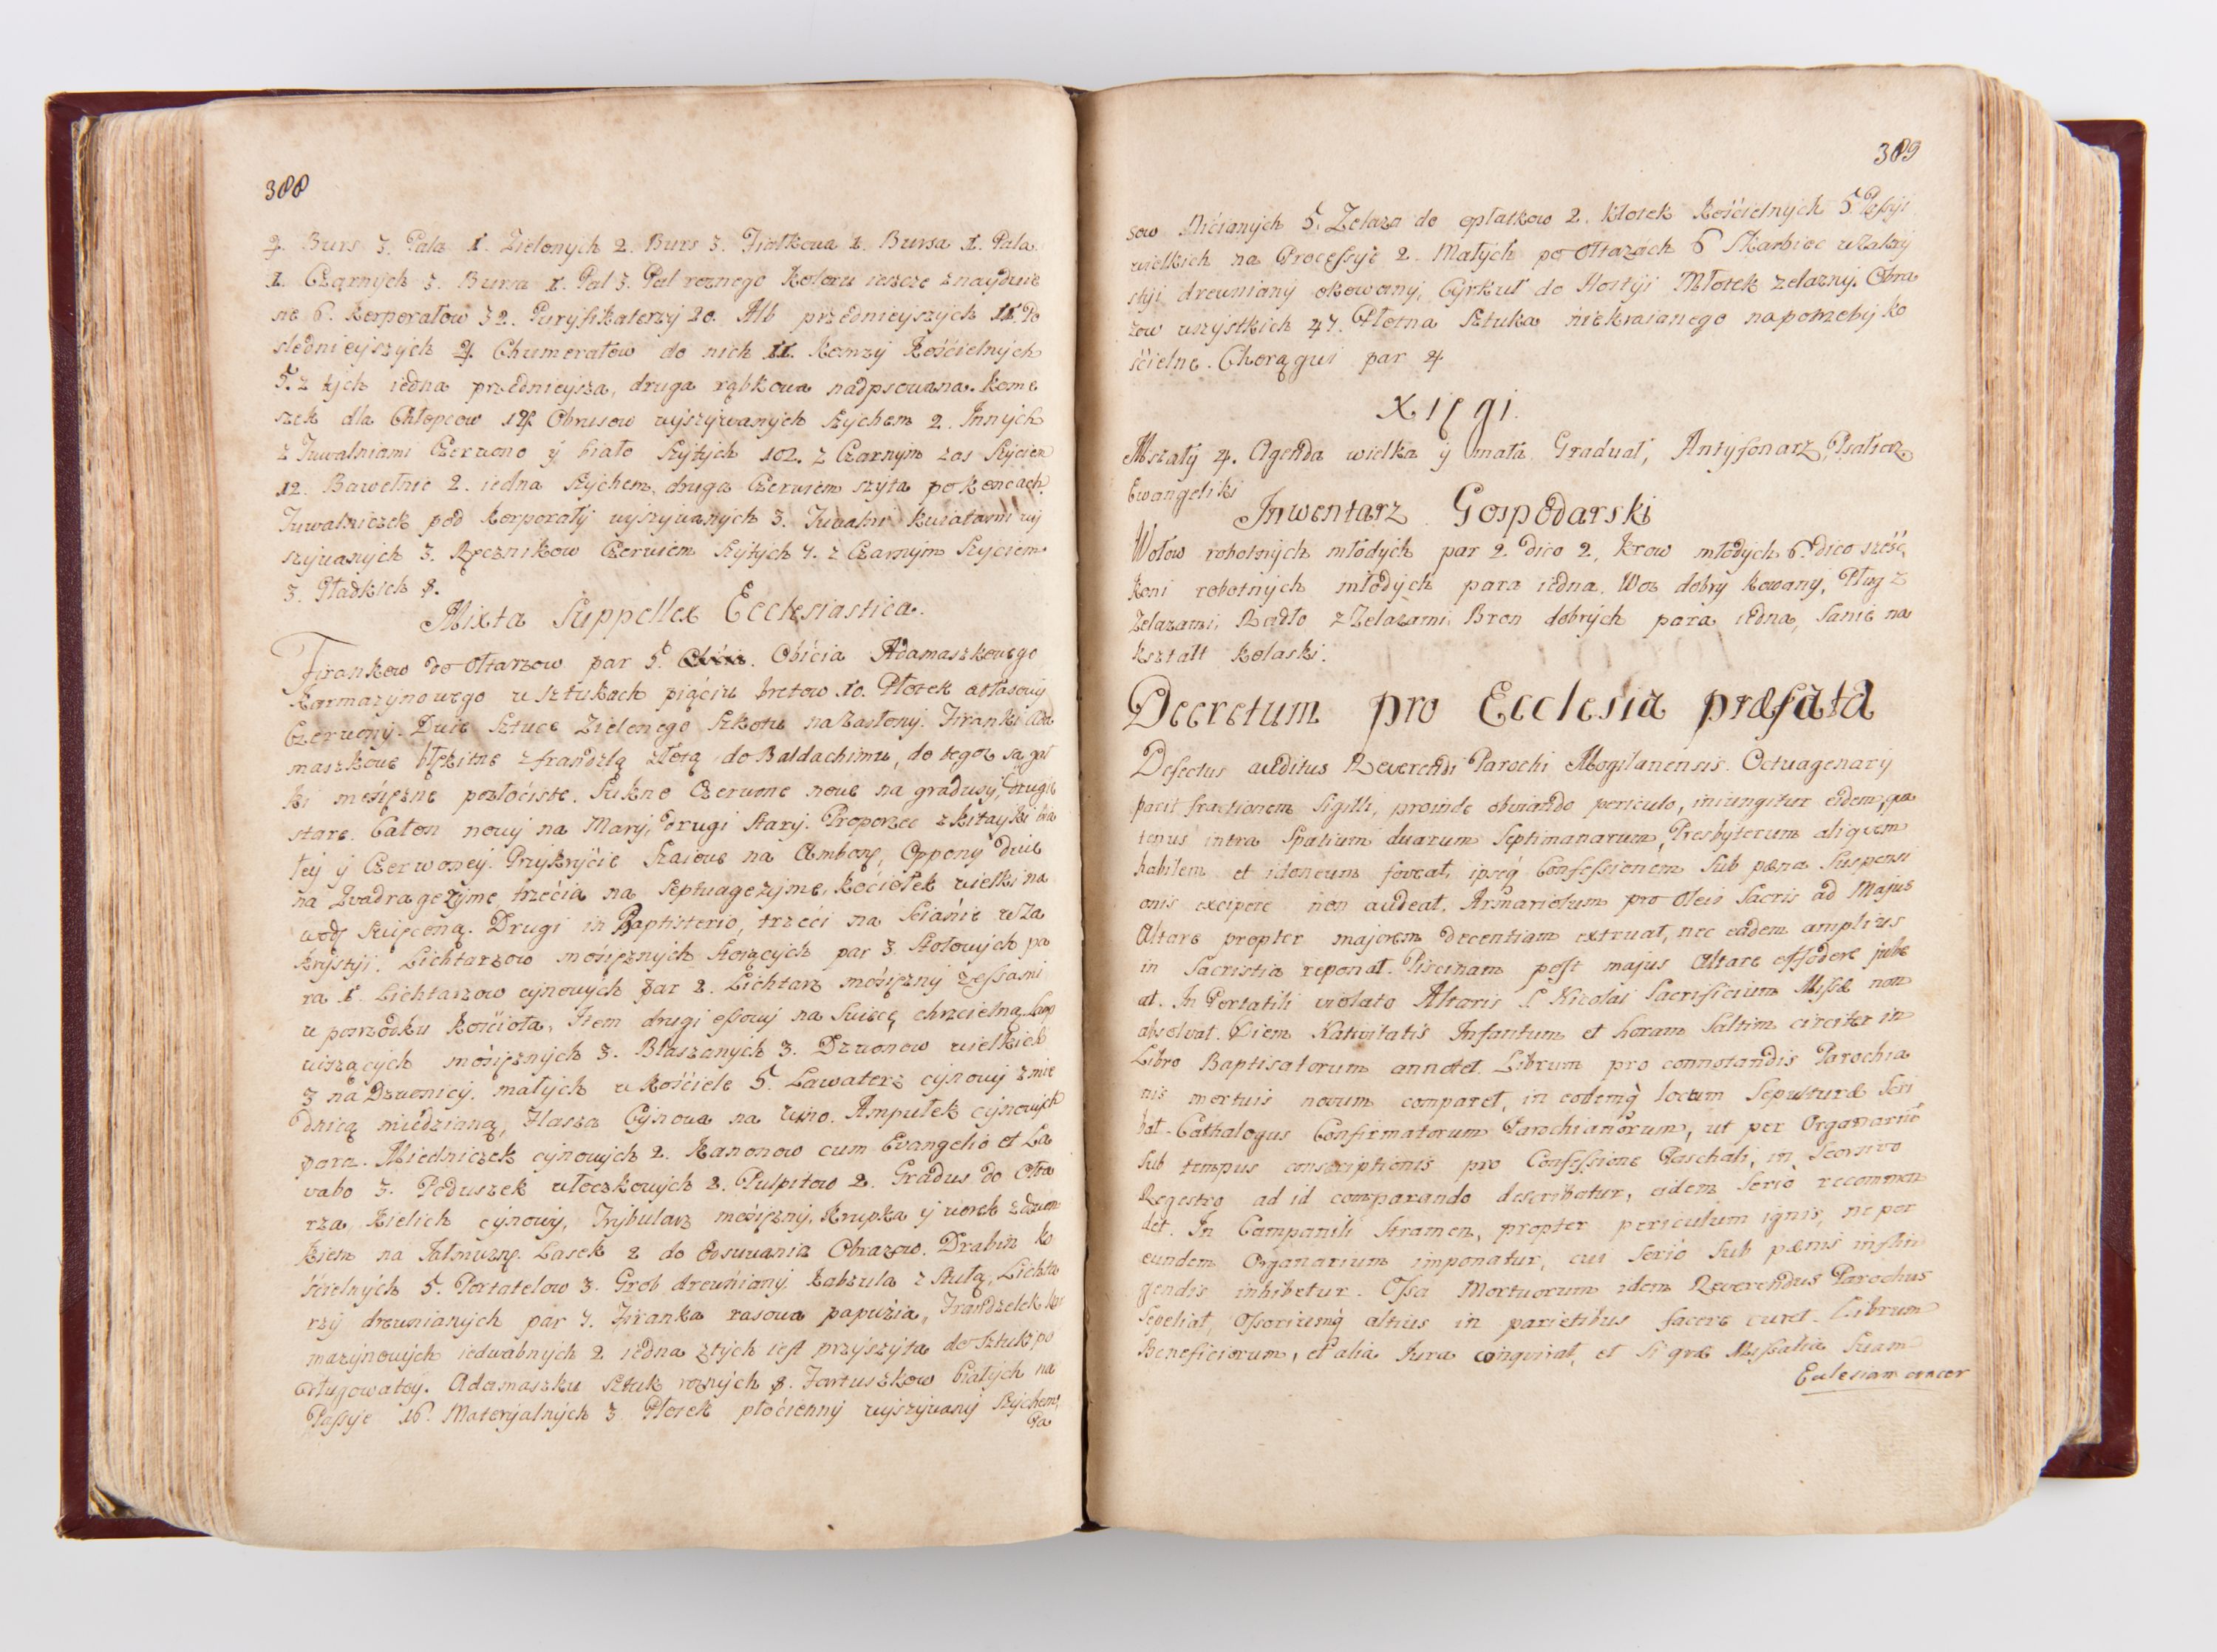 388
4. Burs 3. Pala 1. Zielonych 2. Burs 3. Fiołkowa 1. Bursa 1. Pala
1. Czarnych 3. Bursa 1. Pal 3. Pal roznego koloru ieszcze znayduie
się 6. Korporałow 32. Puryfikaterzy 20. Alb przednieyszych 11. Po
slednieyszych 4 Chumerałow do nich 11. Komży Kościelnych
5. z tych iedna przednieysza, druga rąbkowa nadpsowana. Kome
szek dla Chłopcow Obrusow wyszywanych Szychem 2. Innych
z Tuwalniami Czerwono ÿ biało Szytych 102. z Czarnym zas Szyciem
12. Bawełnic 2. iedna Szychem, druga Czerwiem szyta po koncach.
Tuwalniczek pod Korporały wyszywanych 3. Tuwalni kwiatami wy
szywanych 3. Ręcznikow Czerwiem Szytych 7. z Czarnym Szyciem
3. Gładkich 8.
Mixta Suppellex Ecclesiastica.
Firankow do ołtarzow par 5. Obicia Adamaszkowego
Karmazynowego w sztukach pięciu bretow 10. Płotek atłasowy
Czerwony. Dwie Sztuce Zielonego na Zasłony. Firanki Ada
maszkowe błękitne z frandzlą złotą do Baldachimu, do tegoż są gał
ki mosiężne pozłociste. Sukno Czerwone nowe na gradusy, drugie
stare. Całon nowy na Mary, drugi stary. Proporzec z kitayki bia
łey ÿ Czerwoney. Przykrycie na Ambonę, Oppony dwie
na Quadragezymę, trzecia na Septuagezymę, Kociołek wielki na
wodę Swięconą. Drugi in Baptisterio, trzeci na Scianie w Za
krystyi. Lichtarzow mosiężnych Stoiących par 3. Stołowych pa
ra 1. Lichtarzow cynowych par 2. Lichtarz mosiężny z essami
w posrzodku Kościoła, Item drugi essowy na Swiecę chrzcielną. Lamp
wiszących mosiężnych 3. Błaszanych 3. Dzwonow wielkich
3 na Dzwonicy. małych w Kościele 5. Lawaterz cynowy z mie
dnicą miedzianą, Flasza Cynowa na wino. Ampułek cynowych
para. Miedniczek cynowych 2. Kanonow cum Evangelio et La
vabo 3. Poduszek włoczkowych 2. Pulpitow 2. Gradus do Ołta
rza, Kielich cynowy, Trybularz mosiężny, Krupka ÿ worek z dzwon
kiem na Jałmużnę. Lasek 2 do Zasuwania Obrazow. Drabin ko
ścielnych 5. Portatelow 3. Grob drewniany, Kabzula z Stułą, Lichta
rzy drewnianych par 7. Firanka rasowa papuzia, Frandzelek kar
mazynowych iedwabnych 2 iedna z tych iest przyszyta do Sztuki po
Adamaszku Sztuk roznych 8. Fartuszkow białych na
Passye 16. Materyalnych 3. Płotek płócienny wyszywany Szychem,
Pa
389
sow Nićianych 5. Zelaza do opłatkow 2. Kłotek Kościelnych 5. Passyi
wielkich na Processye 2. Małych po ołtazach 6 Skarbiec w Zakry
styi drewniany okowany, Cyrkuł do Hostyi Młotek zelazny. Obra
zow wszystkich 47. Płotna Sztuka niekraianego na potrzeby ko
ścielne. Chorągwi par 4
Xięgi.
Mszały 4. Agenda wielka ÿ mała Graduał, Antyfonarz, Psałterz
Ewangeliki
Inwentarz Gospodarski
Wołow robotnych młodych par 2. dico 2, Krow młodych 6. dico sześć,
Koni robotnych młodych para iedna. Woz dobry kowany, Pług z
Zelazami, Radło z Zelazami, Bron dobrych para iedna, Sanie na
kształt kolaski.
Decretum pro Ecclesia præfata
Defectus auditus Reverendi Parochi Mogilanensis Octuagenary
parit fractionem Sigilli, proinde obviando periculo, iniungitur eidem, qua
tenus intra Spatium duarum Septimanarum, Presbyterum aliquem
habilem et idoneum foveat, ipseq Confessionem Sub pæna Suspensi
onis excipere non audeat. Armariolum pro Oleis Sacris ad Majus
Altare propter majorem decentiam extruat, nec eadem amplius
in Sacristia reponat. Piscinam post majus Altare effodere jube
at. In Portatili violato Altaris S. Nicolai Sacrificium Missæ non
absolvat. Diem Nativitatis Infantum et horam Saltim circiter in
Libro Baptisatorum annotet. Librum pro connotandis Parochia
nis mortuis novum comparet, in eodemq̀ locum Sepulturæ Scri
bat. Cathalogus Confirmatorum Parochianorum, ut per Organariū
Sub tempus conscriptionis pro Confessione Paschali, in Seorsivo
Regestro ad id comparando describatur, eidem Serió recommen
det. In Campanili Stramen, propter periculum ignis, ne per
eundem Organarium imponatur, cui Serió Sub pænis inflin
gendis inhibetur. Ossa Mortuorum idem Reverendus Parochus
Sepeliat, Ossoriumq̀ altius in parietibus facere curet. Librum
Beneficiorum, et alia Iura conquirat, et Si quæ Missalia Suam
Eclesiam concer